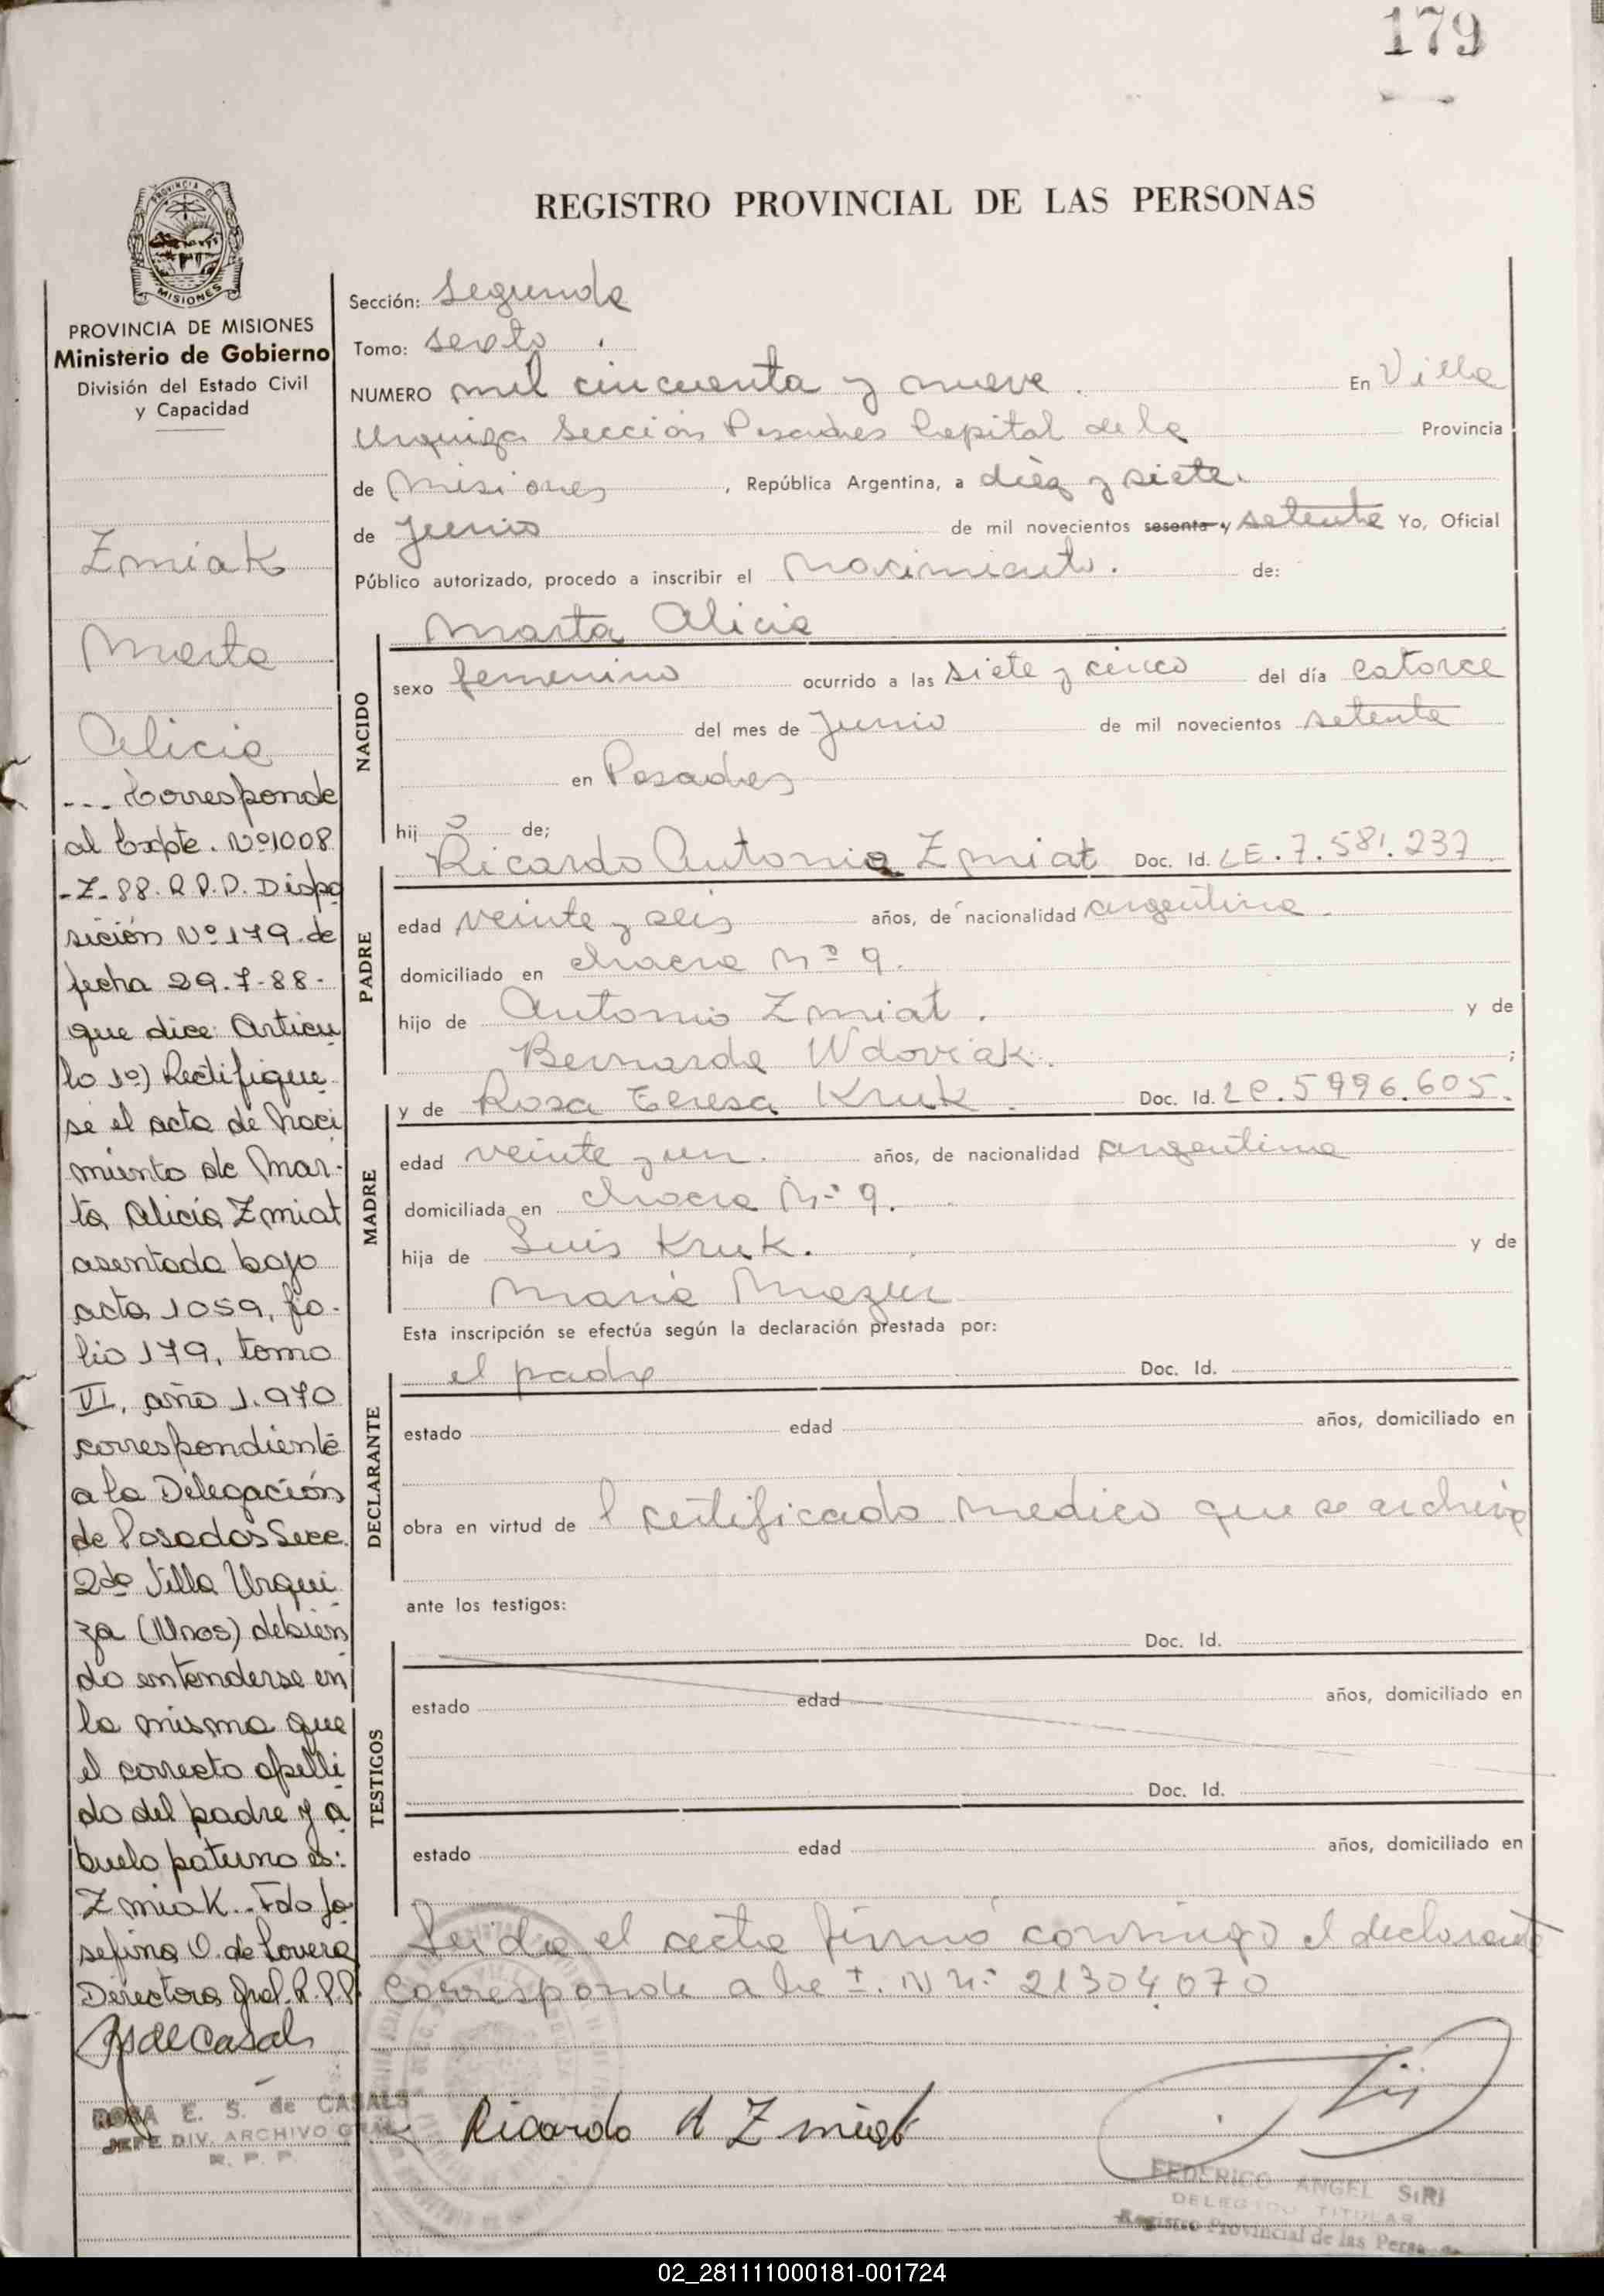 179
REGISTRO PROVINCIAL DE LAS PERSONAS
PROVINCIA DE MISIONES
MISIONES
PROVINCIA DE MISIONES
Ministerio de Gobierno
División del Estado Civil
y Capacidad
Zmiak
Marta
Alicia
--- Corresponde
al Expte. Nº 1008
-Z-88. R.P.P. Dispo
sición Nº 179 de
fecha 29-7-88-
que dice: Articu
lo 1º) Rectifique
se el acta de Naci
miento de Mar-
ta Alicia Zmiat
asentada bajo
acta 1059, fo-
lio 179, tomo
VI, año 1.970
correspondiente
a la Delegación
de Posadas Secc.
2da Villa Urqui
za (Mnes) debien
do entenderse en
la misma que
el correcto apelli
do del padre y a
buelo paterno es:
Zmiak.. Fdo Jo
sefina O. de Lovera
Directora Gral. R.P.P.
ROSA E. S. de CASALS
JEFE DIV. ARCHIVO GRAL.
R. P. P.
Sección: Segunda
Tomo: sexto .
NUMERO mil cincuenta y nueve . En Villa
Urquiza Sección Posadas Capital de la Provincia
de Misiones , República Argentina, a diez y siete.
de Junio de mil novecientos sesenta y setenta Yo, Oficial
Público autorizado, procedo a inscribir el Nacimiento. de:
Marta Alicia
NACIDO
sexo femenino ocurrido a las siete y cinco del día catorce
del mes de Junio de mil novecientos setenta
en Posadas
hij a de;
Ricardo Antonio Zmiat Doc. Id. LE. 7.581.237
PADRE
edad veinte y seis años, de nacionalidad argentina .
domiciliado en chacra Nº 9.
hijo de Antonio Zmiat . y de
Bernarda Wdoviak. ;
y de Rosa Teresa Kruk . Doc. Id. LC. 5996.605.
MADRE
edad veinte y un. años, de nacionalidad argentina
domiciliada en chacra Nº 9.
hija de Luis Kruk. y de
Maria Mazur
Esta inscripción se efectúa según la declaración prestada por:
el padre Doc. Id.
DECLARANTE
estado edad años, domiciliado en
obra en virtud de l certificado medico que se archiva
ante los testigos:
Doc. Id.
TESTIGOS
estado edad años, domiciliado en
Doc. Id.
estado edad años, domiciliado en
Leida el acta firmó conmigo el declarante
Corresponde a la I. N n: 21304.070
Ricardo A Zmiat
FEDERICO ANGEL SIRI
DELEGADO TITULAR
Registro Provincial de las Personas
02_281111000181-001724